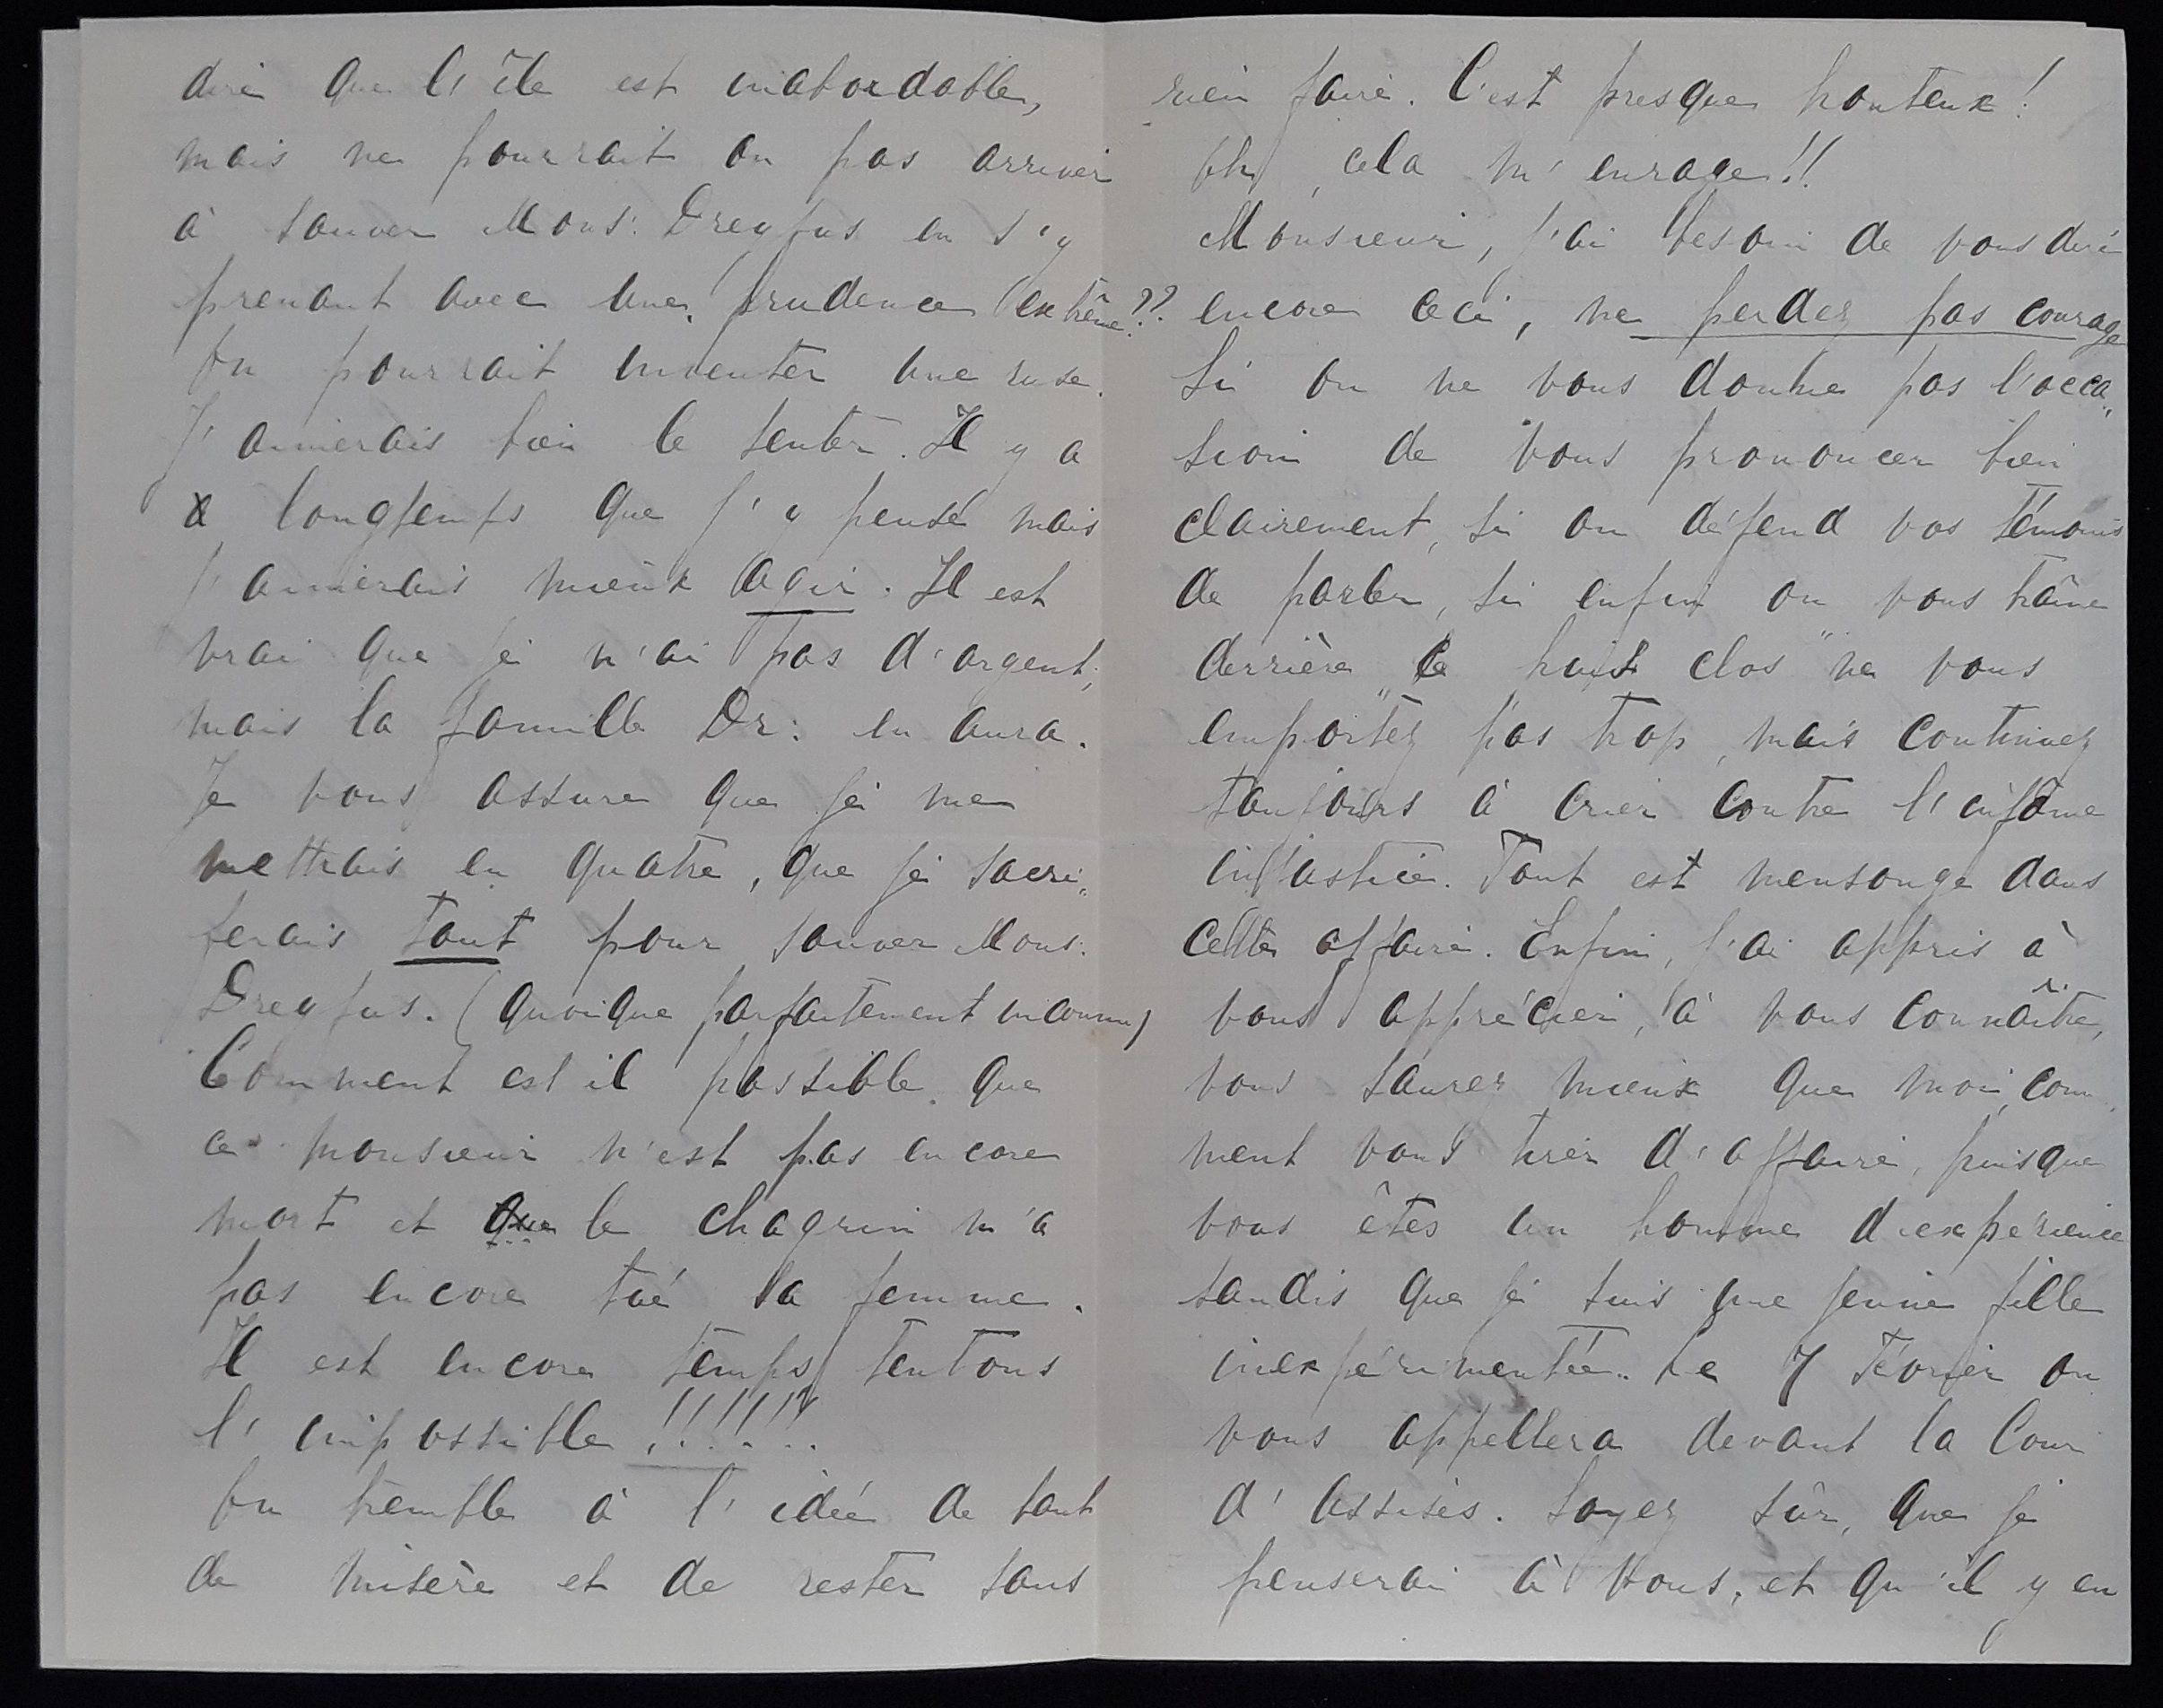 dire que l'île est inabordable,
mais ne pourrait on pas arriver
à sauver Mons: Dreyfus en s'y
prenant avec une prudence extrême??
On pourrait inventer une ruse.
J'aimerais bien le tenter. Il y a
longtemps que j'y pense mais
j'aimerais mieux agir. Il est
vrai que je n'ai pas d'argent;
mais la famille Dr: en aura.
Je vous assure que je me
mettrais en quatre, que je sacri„
ferais tout pour sauver Mons:
Dreyfus. (quoique parfaitement inconnu)
Comment est il possible que
ce monsieur n'est pas encore
mort et que le chagrin n'a
pas encore tué sa femme.
Il est encore temps tentons
l'impossible !!!!!!
On tremble à l'idée de tant
de misère et de rester sans
rien faire. C'est presque honteux!
Oh, cela m'enrage!!
Monsieur, j'ai besoin de vous dire
encore ceci, ne perdez pas courage
si on ne vous donne pas l'occa„
sion de vous prononcer bien
clairement, si on défend vos témoins
de parler, si enfin on vous traîne
derrière „le huis clos" ne vous
emportez pas trop, mais continuez
toujours à crier contre l'infâme
injustice. Tout est mensonge dans
cette affaire. Enfin, j'ai appris à
vous apprécier, à vous connaître,
vous saurez mieux que moi, com„
ment vous tirer d'affaire, puisque
vous êtes un homme d'expérience
tandis que je suis une jeune fille
inexpérimentée. Le 7 Février on
vous appellera devant la Cour
d'Assises. Soyez sûr, que je
penserai à Vous, et qu'il y en